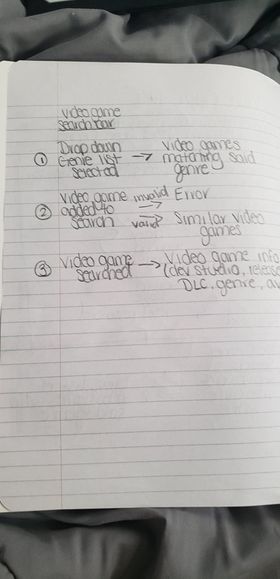 video game
search bar
① Drop down Genre list selected → video games matching said genre
② Video game added to search invalid → Error
valid → Similar video games
③ Video game searched → Video game info
(dev studio, release
DLC, genre,